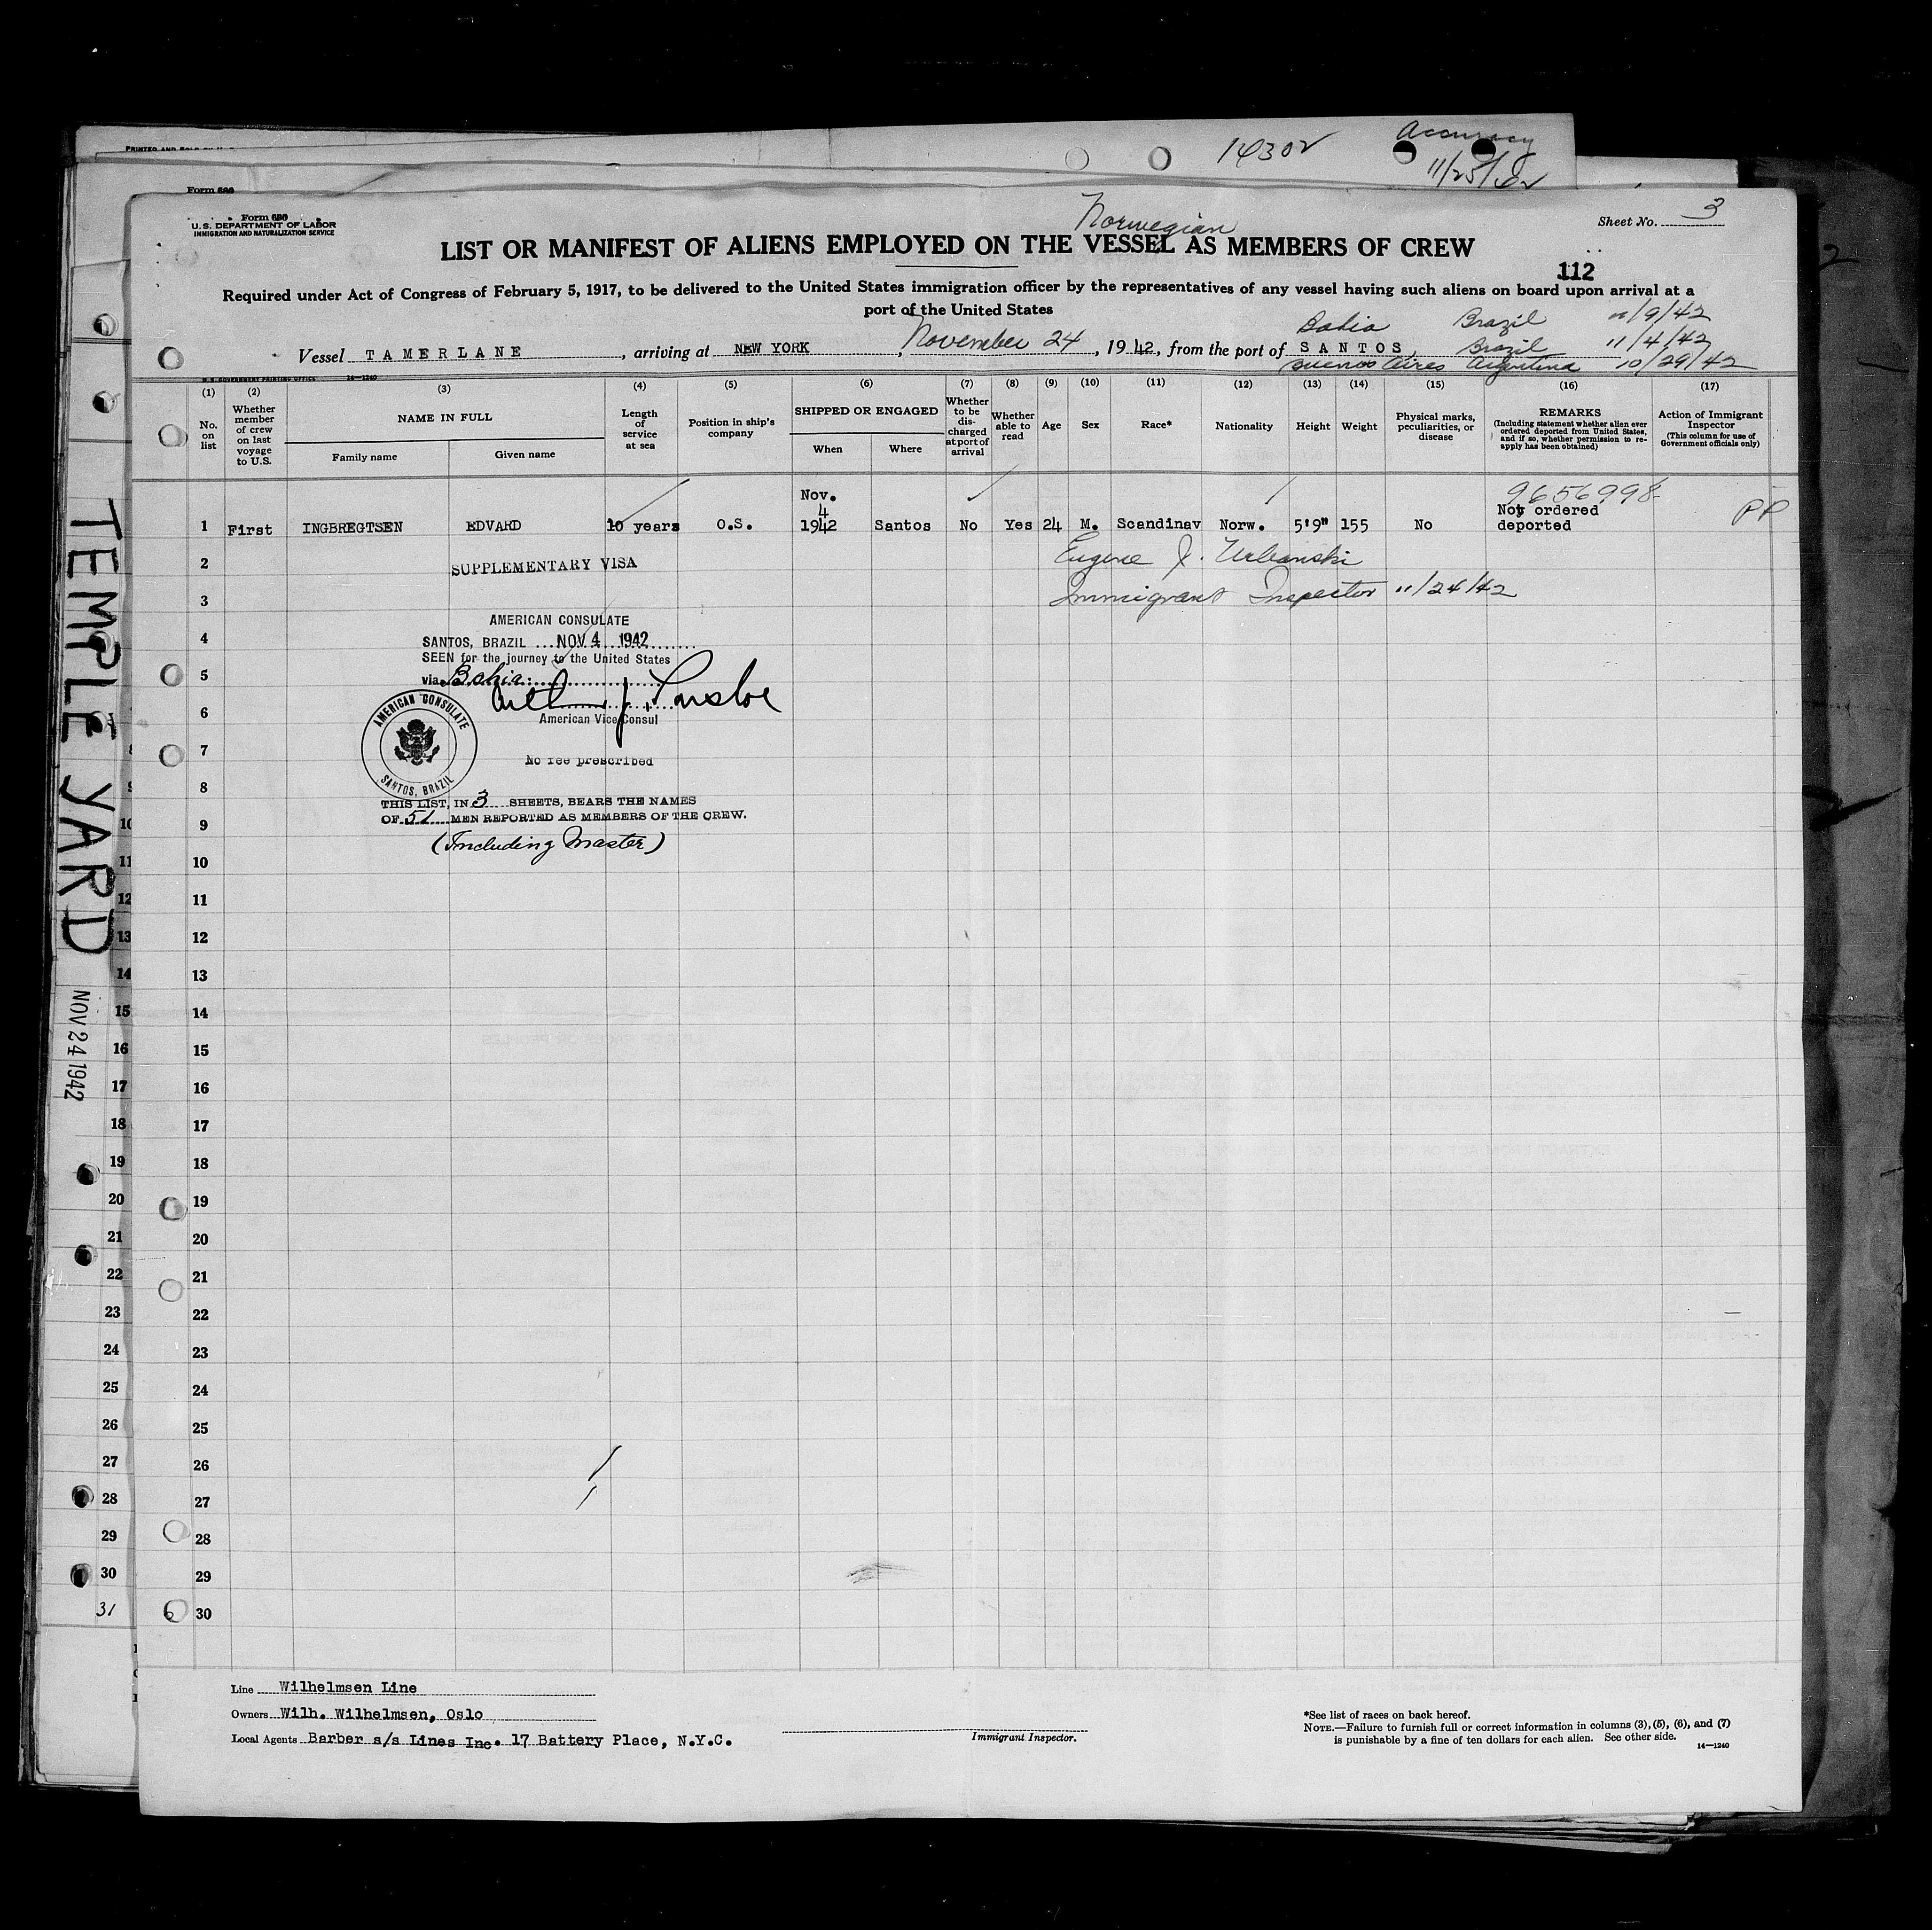 PRINTED AND SOLD BY
14302
Accuracy
11/25/42
Form 680
Form 680
U.S. DEPARTMENT OF LABOR
IMMIGRATION AND NATURALIZATION SERVICE
Norwegian
Sheet No. 3
LIST OR MANIFEST OF ALIENS EMPLOYED ON THE VESSEL AS MEMBERS OF CREW
112
Required under Act of Congress of February 5, 1917, to be delivered to the United States immigration officer by the representatives of any vessel having such aliens on board upon arrival at a
port of the United States
Bahia Brazil 11/9/42
Vessel TAMERLANE, arriving at NEW YORK, November 24, 1942, from the port of SANTOS, Brazil 11/4/42
Buenos Aires Argentina 10/29/42
U.S. GOVERNMENT PRINTING OFFICE 14—1240
(1) (2) (3) (4) (5) (6) (7) (8) (9) (10) (11) (12) (13) (14) (15) (16) (17)
No. on list
Whether member of crew on last voyage to U.S.
NAME IN FULL
Family name
Given name
Length of service at sea
Position in ship's company
SHIPPED OR ENGAGED
When
Where
Whether to be discharged at port of arrival
Whether able to read
Age
Sex
Race*
Nationality
Height
Weight
Physical marks, peculiarities, or disease
REMARKS
(Including statement whether alien ever ordered deported from United States, and if so, whether permission to reapply has been obtained)
Action of Immigrant Inspector
(This column for use of Government officials only)
9656998
1 First INGBREGTSEN EDVARD 10 years O.S. Nov. 4 1942 Santos No Yes 24 M. Scandinav Norw. 5'9" 155 No Not ordered deported PP
2 SUPPLEMENTARY VISA Eugene J. Urbanski
3 Immigrant Inspector 11/24/42
AMERICAN CONSULATE
4 SANTOS, BRAZIL NOV 4 1942
SEEN for the journey to the United States
5 via Bahia
6
American Vice Consul
AMERICAN CONSULATE
SANTOS, BRAZIL
7 No fee prescribed
8
THIS LIST, IN 3 SHEETS, BEARS THE NAMES
9 OF 51 MEN REPORTED AS MEMBERS OF THE CREW.
(Including Master)
10
11
12
13
14
15
16
17
18
19
20
21
22
23
24
25
26
27
28
29
30
TEMPLE YARD
NOV 24 1942
10
11
12
13
14
15
16
17
18
19
20
21
22
23
24
25
26
27
28
29
30
31
Line Wilhelmsen Line
Owners Wilh. Wilhelmsen, Oslo
Local Agents Barber s/s Lines Inc. 17 Battery Place, N.Y.C.
Immigrant Inspector.
*See list of races on back hereof.
NOTE.—Failure to furnish full or correct information in columns (3), (5), (6), and (7)
is punishable by a fine of ten dollars for each alien. See other side.
14—1240